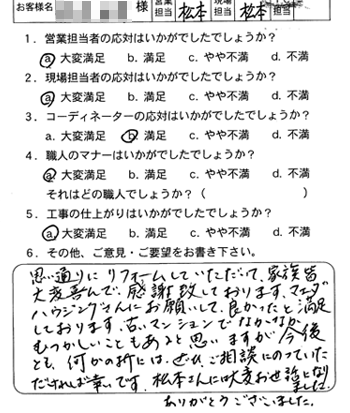 お客様名 様 営業担当 松本 現場担当 松本 担当
1．営業担当者の応対はいかがでしたでしょうか？
a. 大変満足 b. 満足 c. やや不満 d. 不満
2．現場担当者の応対はいかがでしたでしょうか？
a. 大変満足 b. 満足 c. やや不満 d. 不満
3．コーディネーターの応対はいかがでしたでしょうか？
a. 大変満足 b. 満足 c. やや不満 d. 不満
4．職人のマナーはいかがでしたでしょうか？
a. 大変満足 b. 満足 c. やや不満 d. 不満
それはどの職人でしょうか？（ ）
5．工事の仕上がりはいかがでしたでしょうか？
a. 大変満足 b. 満足 c. やや不満 d. 不満
6．その他、ご意見・ご要望をお書き下さい。
思い通りにリフォームしていただいて、家族皆
大変喜んで、感謝致しております。マエダ
ハウジングさんにお願いして、良かったと満足
しております。古いマンションでなかなか
むつかしいこともあると思いますが今後
とも、何かの折には、ぜひご相談にのっていた
だければ幸いです。松本さんには大変お世話になり
ました。
ありがとうございました。